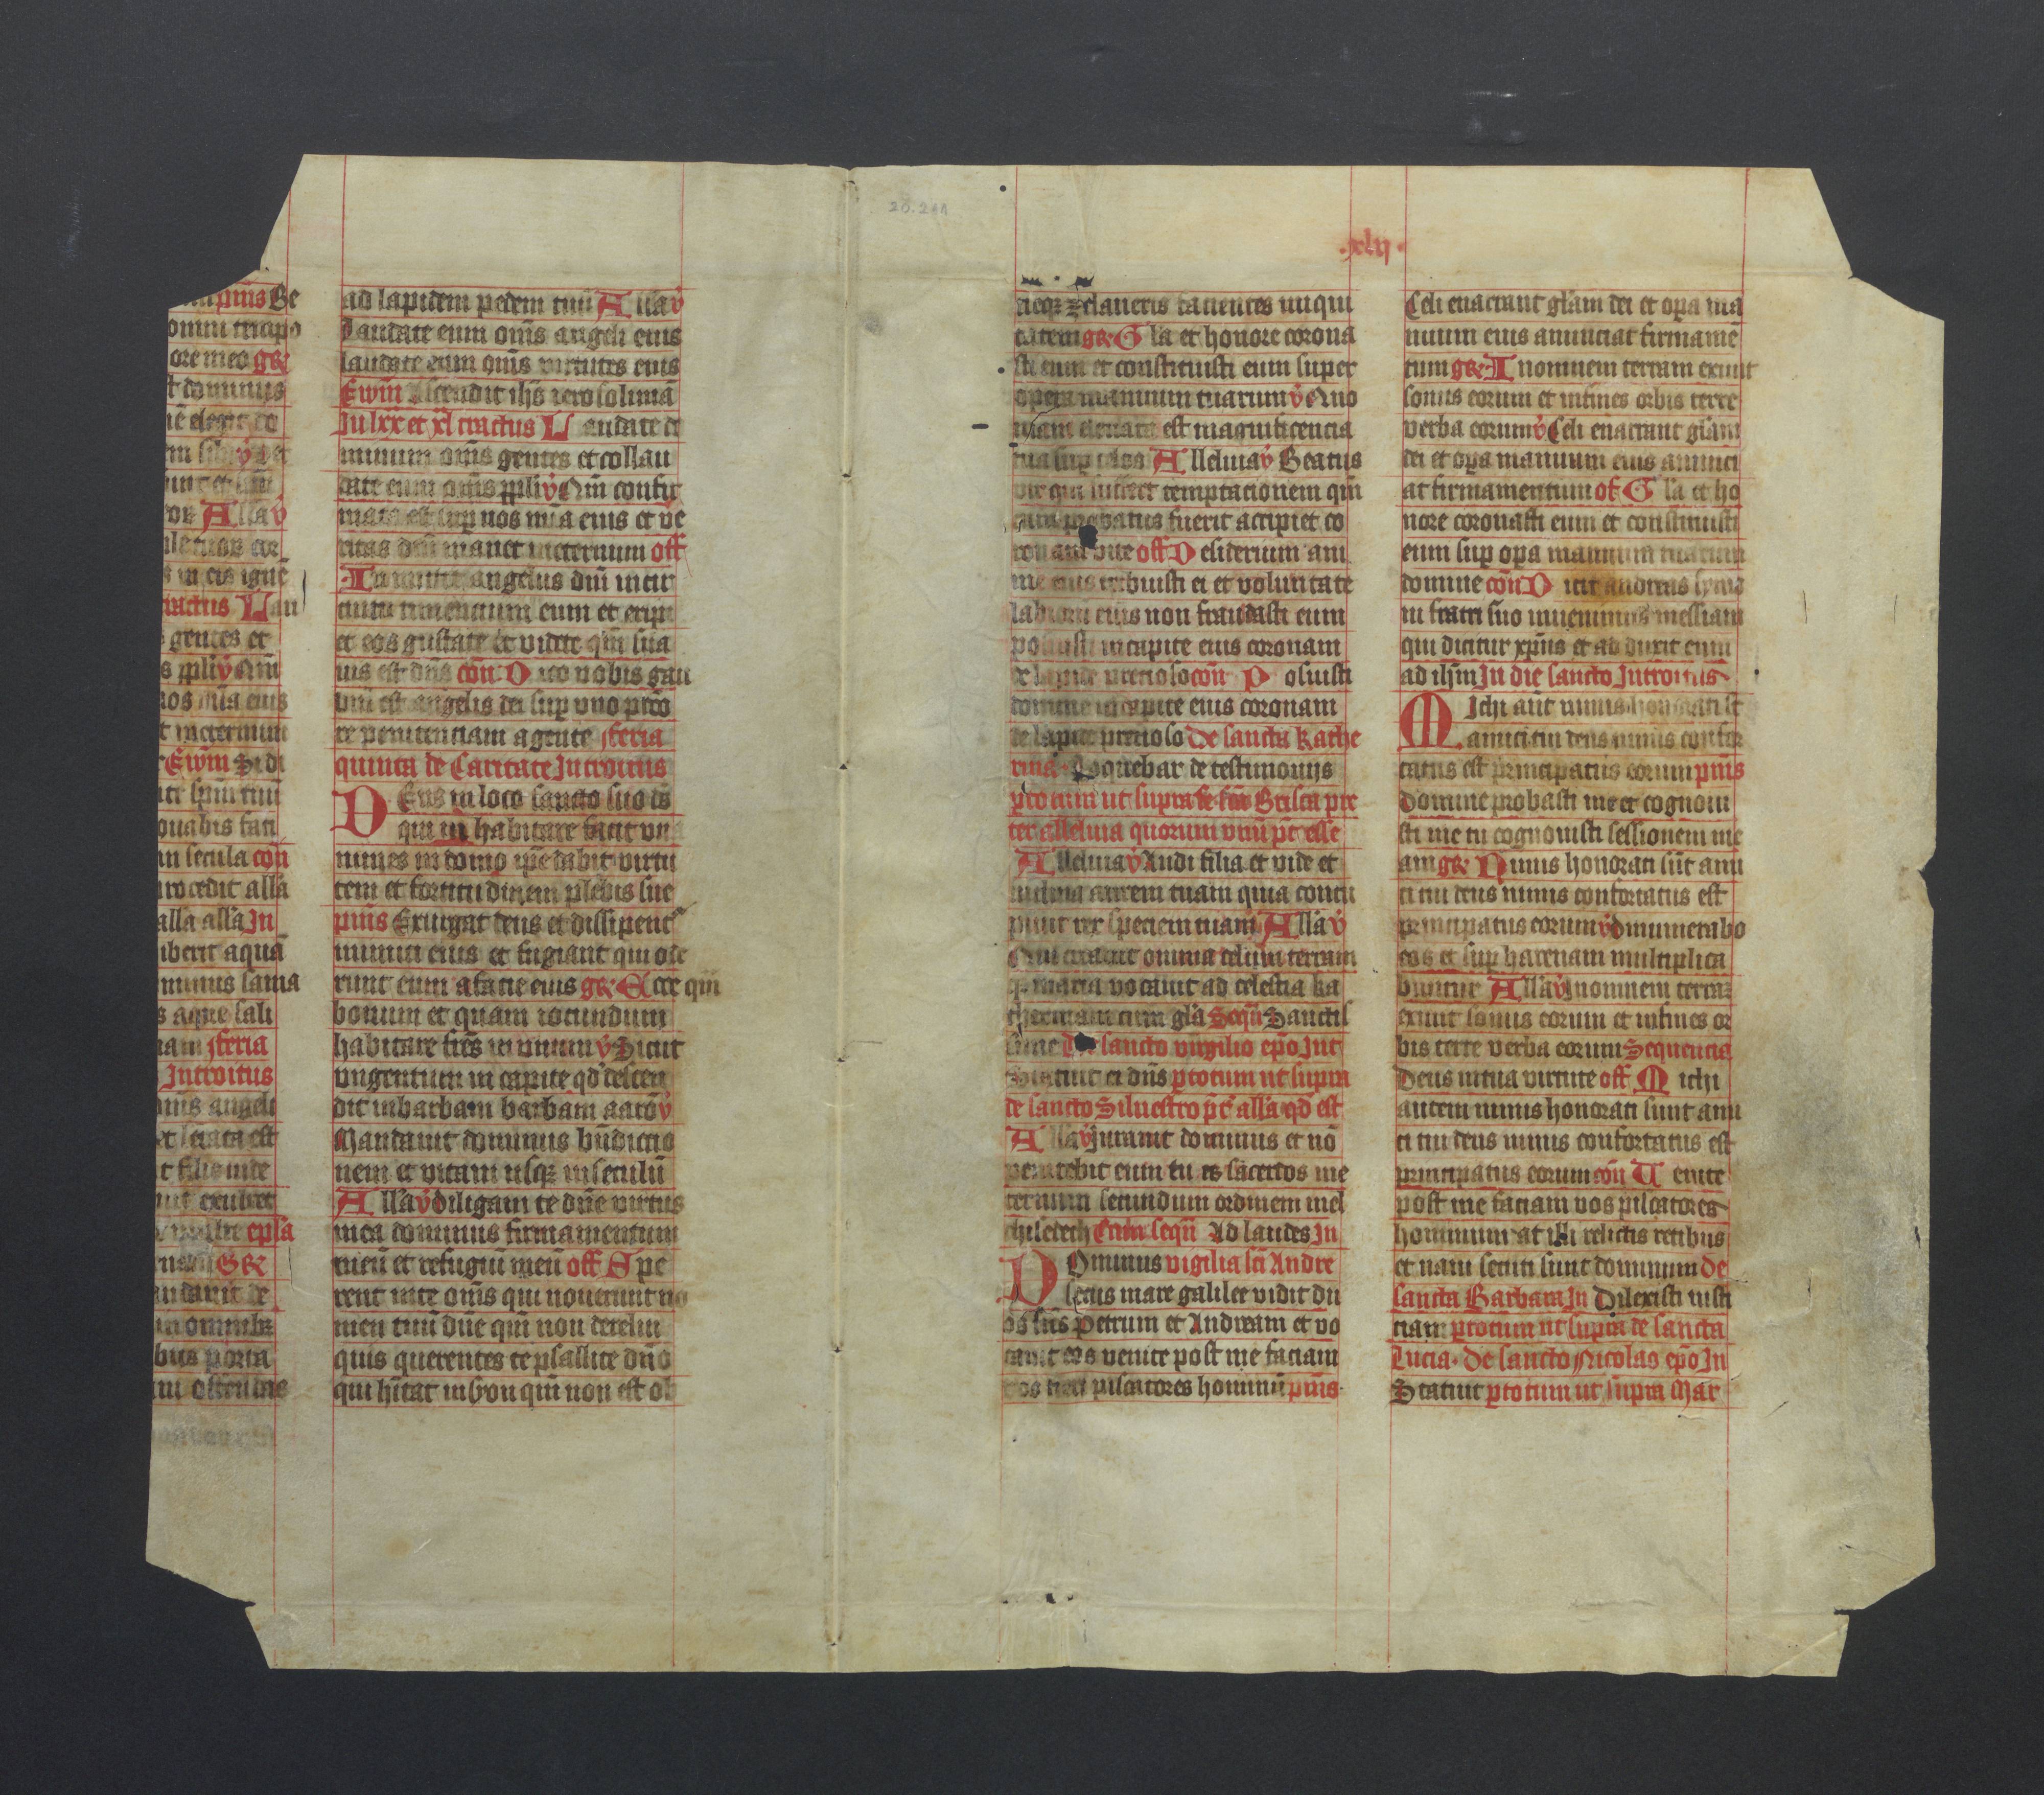 pīus Be
omni tempo
ore meo gr
t dominus
nē elegit do
gentes et
s ppli v Qm̄
nos mīa eius
Ewm̄ Si di
in secula cōn
procedit alla
alla alla In
iberit aquā
minus sama
s aque sali
nam feria
Introitus
mīs angeli
nit exultet
epla
GR
in omnib
bus porta
ad lapidem pedem tuū Allā v
Laudate eum om̄s angeli eius
laudate eum om̄s virtutes eius
Ewm̄ Ascendit ihs ierosolimā
In lxx et xl tractus Laudate do
minum om̄s gentes et collau
date eum om̄s ppli v Qm̄ confir
mata est sup nos mīa eius et ve
ritas dn̄i manet ineternum off
Inmittit angelus dn̄i incir
cuitu timencium eum et eripi
et eos gustate et videte qm̄ sua
uis est dn̄s cōn Dico vobis gau
diū est angelis dei sup vno pctō
re penitenciam agente feria
quinta de Caritate Introitus
DEus in loco sancto suo ds̄
qui in habitare facit vna
nimes in domo ip̄e dabit virtu
tem et fortitudinem plebis sue
pīus Exurgat deus et dissipent
inimici eius et fugiant qui ode
runt eum a facie eius gr Ecce qm̄
bonum et quam iocundum
habitare frēs in vnum v Sicut
vngentum in capite qd descen
dit inbarbam barbam aarō v
Mandauit dominus bn̄dictio
nem et vitam usq inseculū
Allā v diligam te dn̄e virtus
mea dominus firmamentum
meū et refugiū meū off Spe
rent inte om̄s qui nouerunt no
men tuū dn̄e qm̄ non derelin
quis querentes te psallite dn̄o
qui hītat insyon qm̄ non est ob
20.2
xlij
neq zelaueris facientes iniqui
tatem gr Gla et honore corona
sti eum et constituisti eum super
opera manuum tuarum v Quo
niam eleuata est magnificencia
tua sup celos Alleluia v Beatus
vir qui suffert temptacionem qm̄
cum probatus fuerit accipiet co
ronam vite off Desiderium ani
me eius tribuisti ei et voluntate
labiorū eius non fraudasti eum
posuisti incapite eius coronam
de lapide precioso cōn Posuisti
domine incapite eius coronam
de lapide precioso De sancta Kathe
rina Loquebar de testimonijs
ptotum ut supra de scā Prisca pre
ter alleluia quorum vnū pt̄ esse
Alleluia v Audi filia et vide et
inclina aurem tuam quia concu
piuit rex speciem tuam Allā v
Qui creauit omnia celum terram
q maria vocauit ad celestia ka
therinam cum gla Sequē Sanctis
sime De sancto virgilio ep̄o Int
Statuit ei dn̄s ptotum ut supra
de sancto Siluestro pt̄ allā qd est
Allā v Jurauit dominus et nō
penitebit eum tu es sacerdos ine
ternum secundum ordinem mel
chisedech Cum sequē Ad laudes In
DOminus vigilia sci Andre
secus mare galilee vidit du
os frēs Petrum et Andream et vo
cauit eos venite post me faciam
vos fieri piscatores hominū pīus
Celi enarrant glam dei et opa ma
nuum eius anunciat firmamē
tum gr Inomnem terram exiuit
sonus eorum et infines orbis terre
verba eorum v Celi enarrant glam
dei et opa manuum eius anunci
at firmamentum of Gla et ho
nore coronasti eum et constituisti
eum sup opa manuum tuarum
domine cōn Dicit andreas symo
ni fratri suo inuenimus messiam
qui dicitur xpus et adduxit eum
ad ihm In die sancto Introitus
Michi aūt nimis honorati st
amici tui deus nimis confor
tatus est principatus eorum pīus
Domine probasti me et cognoui
sti me tu cognouisti sessionem me
am gr Nimis honorati sūt ami
ci tui deus nimis confortatus est
principatus eorum v dinumerabo
eos et sup harenam multiplica
buntur Allā v Inomnem terram
exiuit sonus eorum et infines or
bis terre verba eorum Sequencia
Deus intua virtute off Michi
autem nimis honorati sunt ami
ci tui deus nimis confortatus est
principatus eorum cōn Venite
post me faciam vos piscatores
hominum at illi relictis retibus
et naui secuti sunt dominum De
sancta Barbara In Dilexisti iusti
ciam ptotum ut supra de sancta
Lucia De sancto Nicolao ep̄o In
Statuit ptotum ut supra Mar